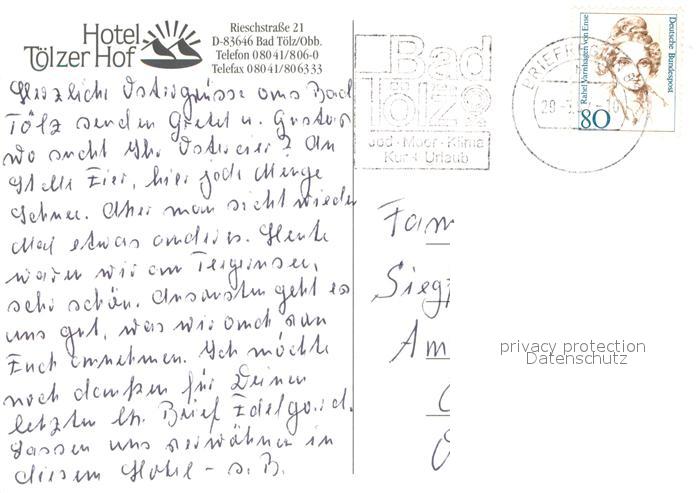 Hotel
Tölzer Hof
Rieschstraße 21
D-83646 Bad Tölz/Obb.
Telefon 08041/806-0
Telefax 08041/806333
Herzliche Ostergrüsse aus Bad
Tölz senden Gretel u. Gustav
wo sucht Ihr Ostereier? An
Stelle Eier, hier jede Menge
Schnee. Aber man sieht wieder
Mal etwas anderes. Heute
waren wir am Tegernsee,
sehr schön. Ansonsten geht es
uns gut, was wir auch von
Euch annehmen. Ich möchte
noch danken für Deinen
letzten lb. Brief Edelgard.
Lassen uns verwöhnen in
diesem Hotel - s. B.
Bad
Tölz
Jod · Moor · Klima
Kur + Urlaub
BRIEFREGION
Rahel Varnhagen von Ense
Deutsche Bundespost
80
Fam
Sieg
Am
privacy protection
Datenschutz